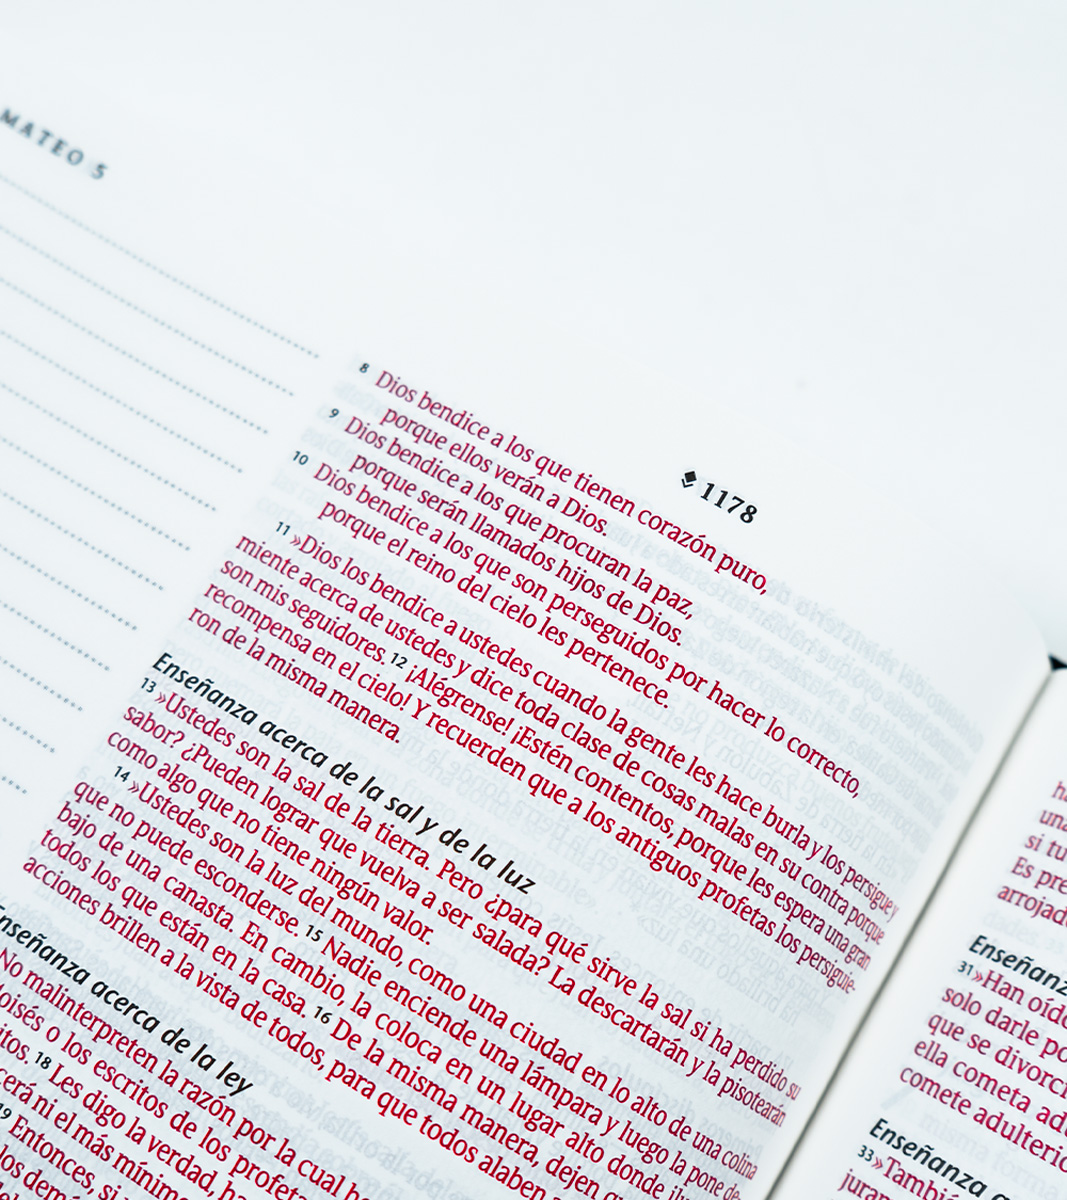 MATEO 5
1178
8 Dios bendice a los que tienen corazón puro,
porque ellos verán a Dios.
9 Dios bendice a los que procuran la paz,
porque serán llamados hijos de Dios.
10 Dios bendice a los que son perseguidos por hacer lo correcto,
porque el reino del cielo les pertenece.
11 »Dios los bendice a ustedes cuando la gente les hace burla y los persigue y
miente acerca de ustedes y dice toda clase de cosas malas en su contra porque
son mis seguidores. 12 ¡Alégrense! ¡Estén contentos, porque les espera una gran
recompensa en el cielo! Y recuerden que a los antiguos profetas los persiguie-
ron de la misma manera.
Enseñanza acerca de la sal y de la luz
13 »Ustedes son la sal de la tierra. Pero ¿para qué sirve la sal si ha perdido su
sabor? ¿Pueden lograr que vuelva a ser salada? La descartarán y la pisotearán
como algo que no tiene ningún valor.
14 »Ustedes son la luz del mundo, como una ciudad en lo alto de una colina
que no puede esconderse. 15 Nadie enciende una lámpara y luego la pone de-
bajo de una canasta. En cambio, la coloca en un lugar alto donde
todos los que están en la casa. 16 De la misma manera, dejen
acciones brillen a la vista de todos, para que todos alaben
Enseñanza acerca de la ley
No malinterpreten la razón por la cual
Moisés o los escritos de los profetas
18 Les digo la verdad,
ni el más mínimo
19 Entonces, si
si tu
Es
31 »Han oído
solo darle
que se
ella cometa
comete adulterio
Enseñanza
33 »También